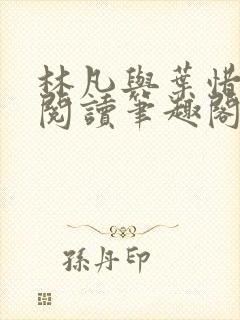 林凡與葉惜
閱讀筆趣閣
孫丹印